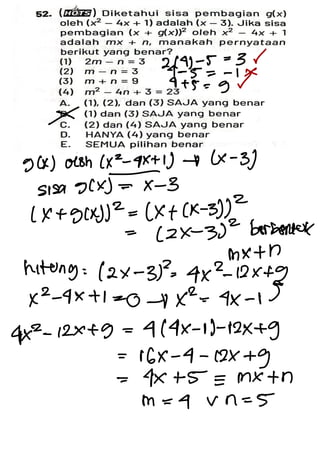 52. (HOTS) Diketahui sisa pembagian g(x)
oleh (x² – 4x + 1) adalah (x – 3). Jika sisa
pembagian (x + g(x))² oleh x² – 4x + 1
adalah mx + n, manakah pernyataan
berikut yang benar?
(1) 2m – n = 3 2(4)-5 = 3 ✓
(2) m – n = 3 4-5 = -1 ✗
(3) m + n = 9 4+5 = 9 ✓
(4) m² – 4n + 3 = 23
A. (1), (2), dan (3) SAJA yang benar
B. (1) dan (3) SAJA yang benar
C. (2) dan (4) SAJA yang benar
D. HANYA (4) yang benar
E. SEMUA pilihan benar
g(x) oleh (x²-4x+1) → (x-3)
sisa g(x) = x-3
(x+g(x))² = (x+(x-3))²
= (2x-3)² berbentuk
mx+n
hitung: (2x-3)² = 4x²-12x+9
x²-4x+1=0 → x² = 4x-1
4x²-12x+9 = 4(4x-1)-12x+9
= 16x-4-12x+9
= 4x+5 ≡ mx+n
m=4 v n=5